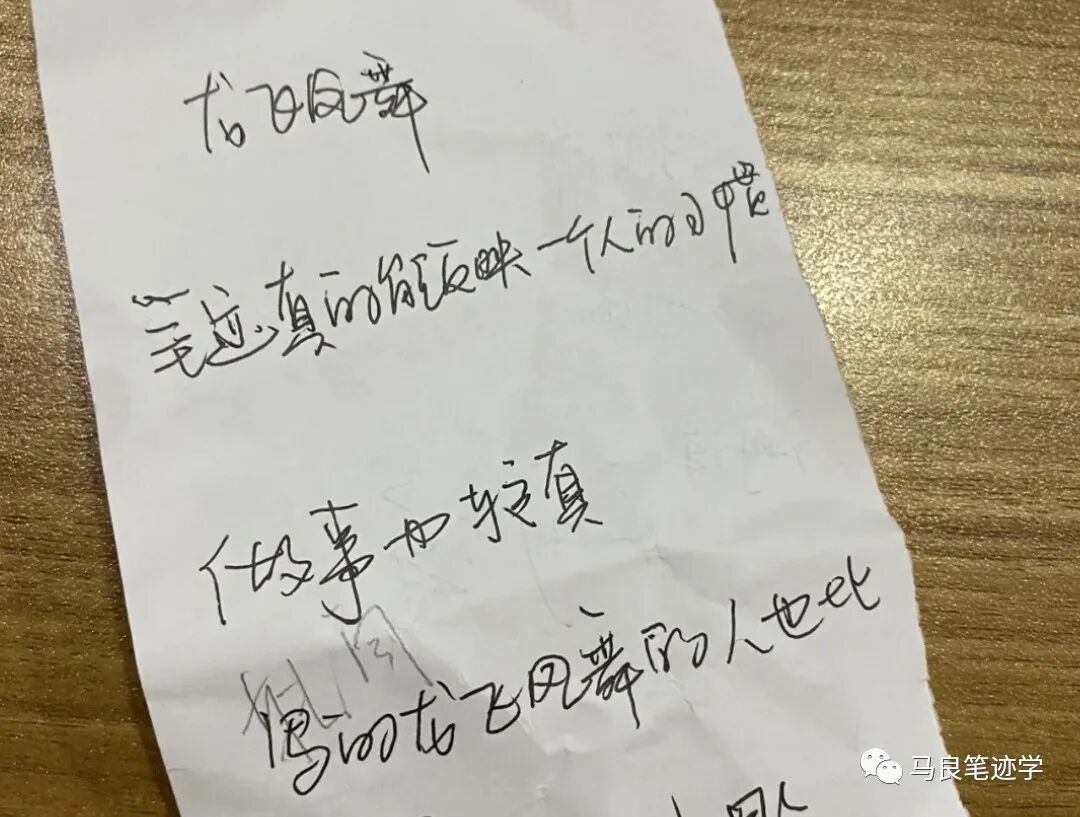 龙飞凤舞
笔迹真的能反映一个人的习惯
做事也较真
写的龙飞凤舞的人也比
马良笔迹学